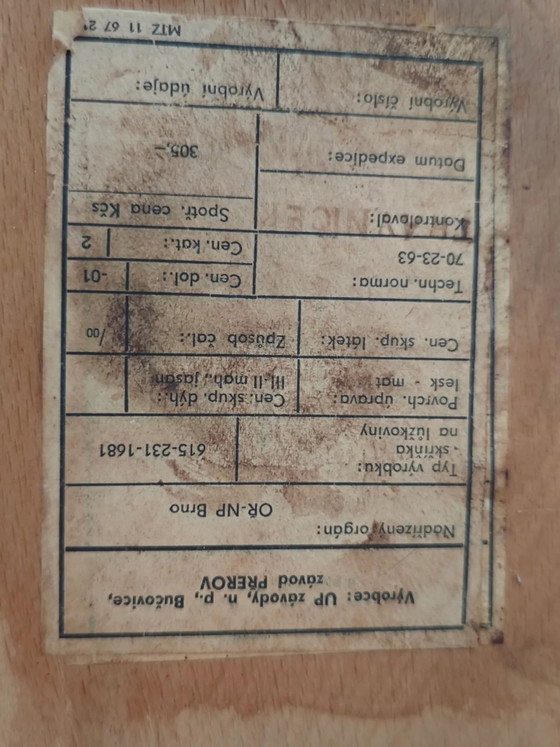 Výrobce: UP závody, n. p., Bučovice,
závod PŘEROV
Nadřízený orgán:
OŘ-NP Brno
Typ výrobku:
skříňka
na lůžkoviny
615-231-1681
Povrch. úprava:
lesk - mat
Cen. skup. dýh.:
III. II mah., jasan
Cen. skup. látek:
Způsob čal.:
/00
Techn. norma:
70-23-63
Cen. dol.:
-01
Cen. kat.:
2
Kontroloval:
Spotř. cena Kčs
305,—
Datum expedice:
Výrobní číslo:
Výrobní údaje:
MTZ 11 67 2